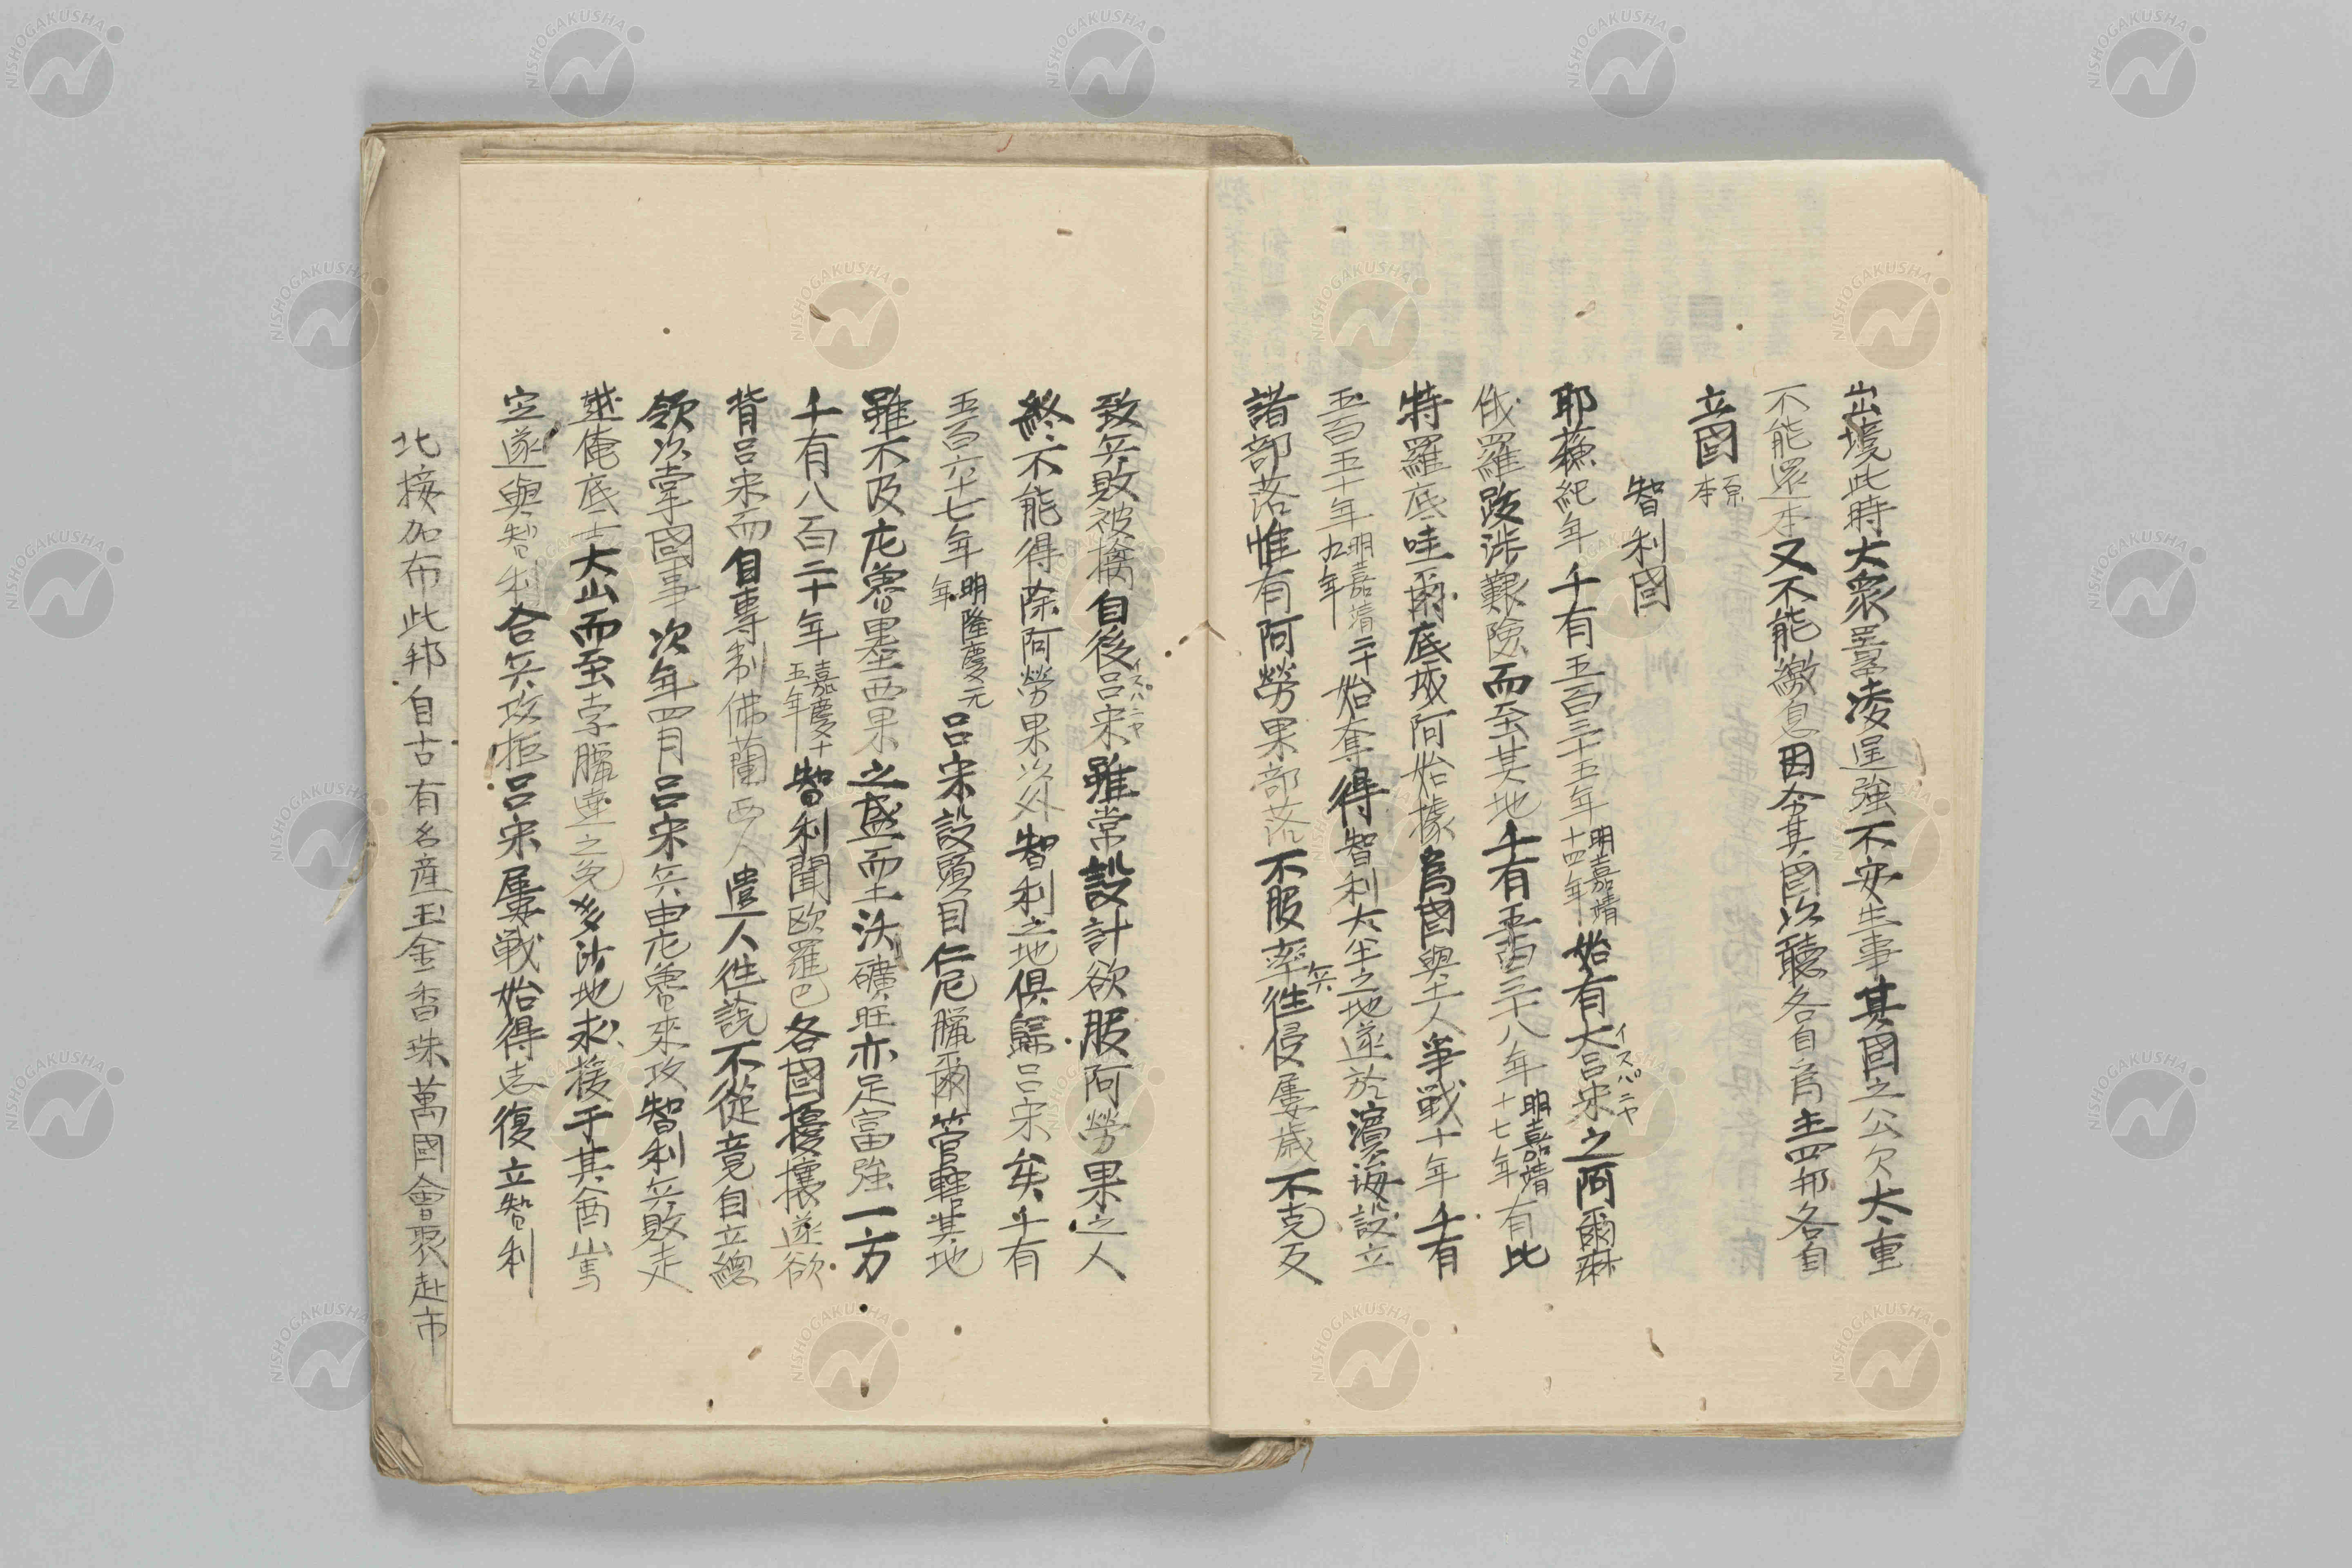 出境此時大衆囂凌逞強不安生事其國之公欠太重
不能還本又不能繳息因令其國次聽各自爲主四邦各自
立國原本
智利國
耶蘇紀年千有五百三十五年明嘉靖十四年始有大呂宋イスパニヤ之阿爾麻
俄羅跋涉艱險而至其地千有五百三十八年明嘉靖十七年有比
特羅底哇爾底威阿始據爲國與土人爭戰十年千有
五百五十年明嘉靖二十九年始奪得智利大半之地遂於濱海設立
諸部落惟有阿勞果部落不服率兵往侵屢歲不克反
致兵敗被擒自後呂宋イスパニヤ雖常設計欲服阿勞果之人
終不能得除阿勞果次外智利之地俱歸呂宋矣千有
五百六十七年明隆慶元年呂宋設頭目仁尼臘爾管轄其地
雖不及孛魯墨西果之盛而土沃礦旺亦足富強一方
千有八百二十年嘉慶十五年智利聞歐羅巴各國擾攘遂欲
背呂宋而自專制佛蘭西人遣人往說不從竟自立總
領次掌國事次年四月呂宋兵由孛魯來攻智利兵敗走
越俺底士大山而至孛臘達之免多沙地求援于其酋
空遂與智利合兵攻拒呂宋屢戰始得志復立智利
北接加布此邦自古有名產玉金香珠萬國會聚赴市